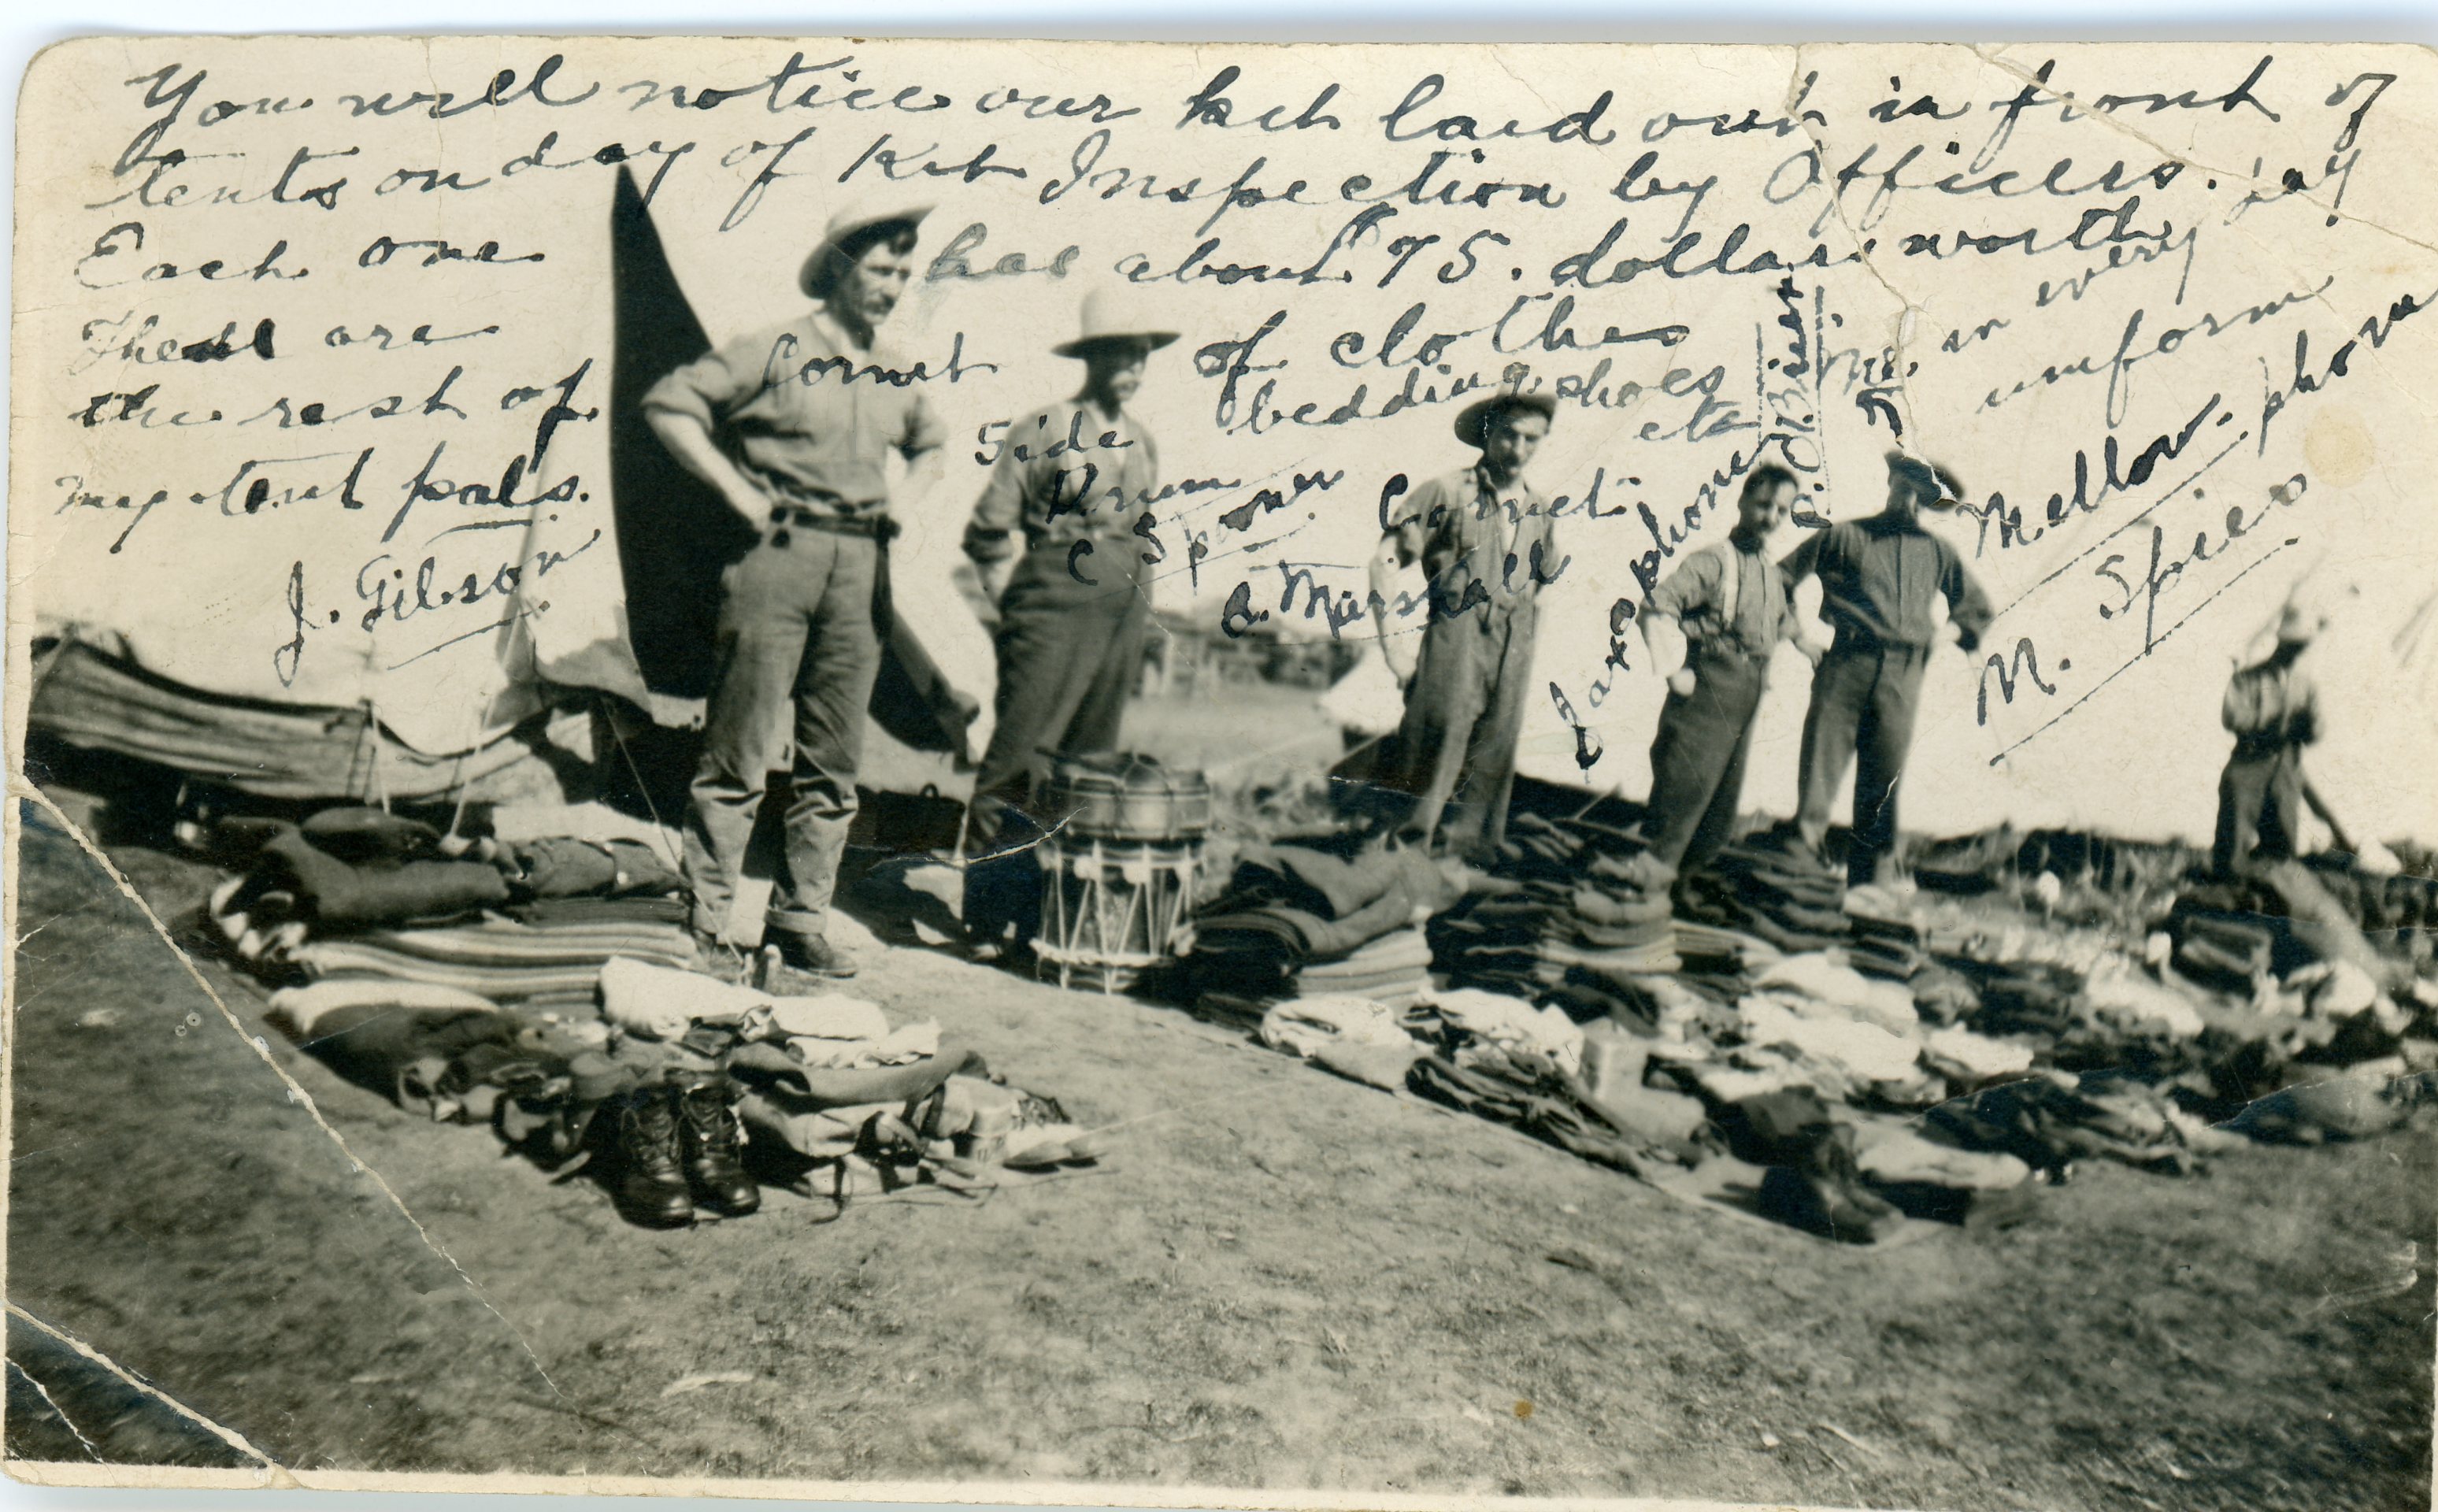 You will notice our kit laid out in front of
tents on day of Kit Inspection by Officers.
Each one has about 75. dollars worth
of clothes
bedding, shoes
etc
These are
the rest of
my tent pals.
J. Gilson
Cornet
Side
Drum
C Spooner
Cornet
A. Marshall
Saxophone
Me. in every day
uniform
Mellow phone
M. Spies